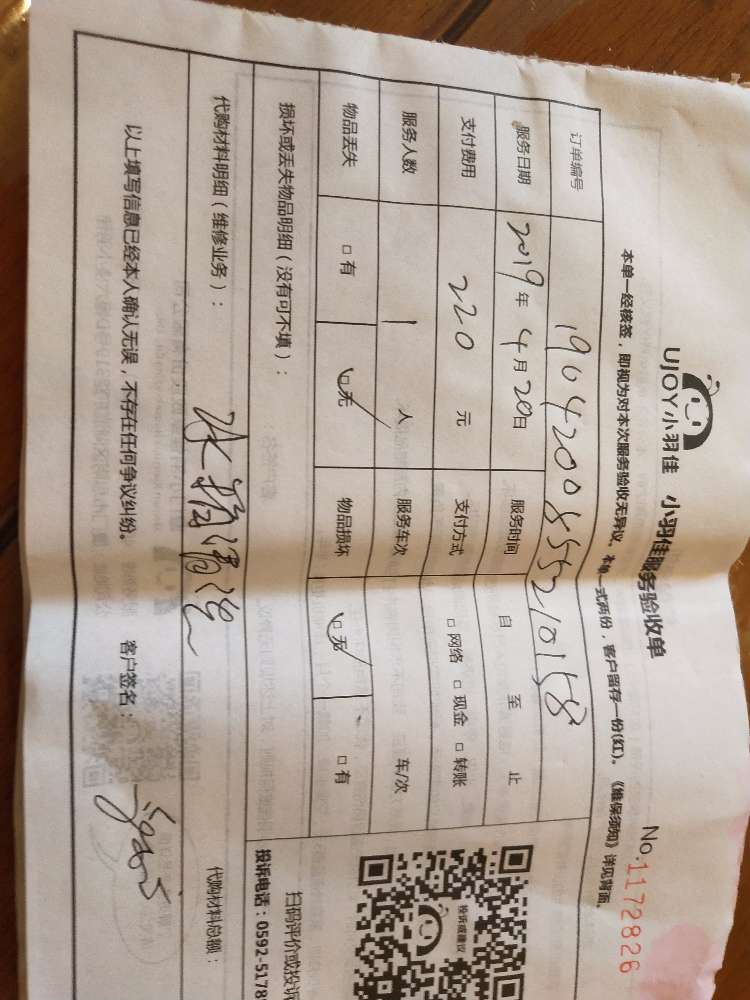 UJOY小羽佳 小羽佳服务验收单
No.1172826
本单一经核签，即视为对本次服务验收无异议。本单一式两份，客户留存一份(红)。《维保须知》详见背面。
订单编号 1904200855210158
服务日期 2019年4月20日 服务时间 自 至 止
支付费用 220元 支付方式 □网络 □现金 □转账
服务人数 1人 服务车次 车/次
物品丢失 □有 □无 物品损坏 □无 □有
损坏或丢失物品明细（没有可不填）：
代购材料明细（维修业务）： 代购材料总额：
以上填写信息已经本人确认无误，不存在任何争议纠纷。 客户签名：
投诉或建议
扫码评价或投诉
投诉电话：0592-5178